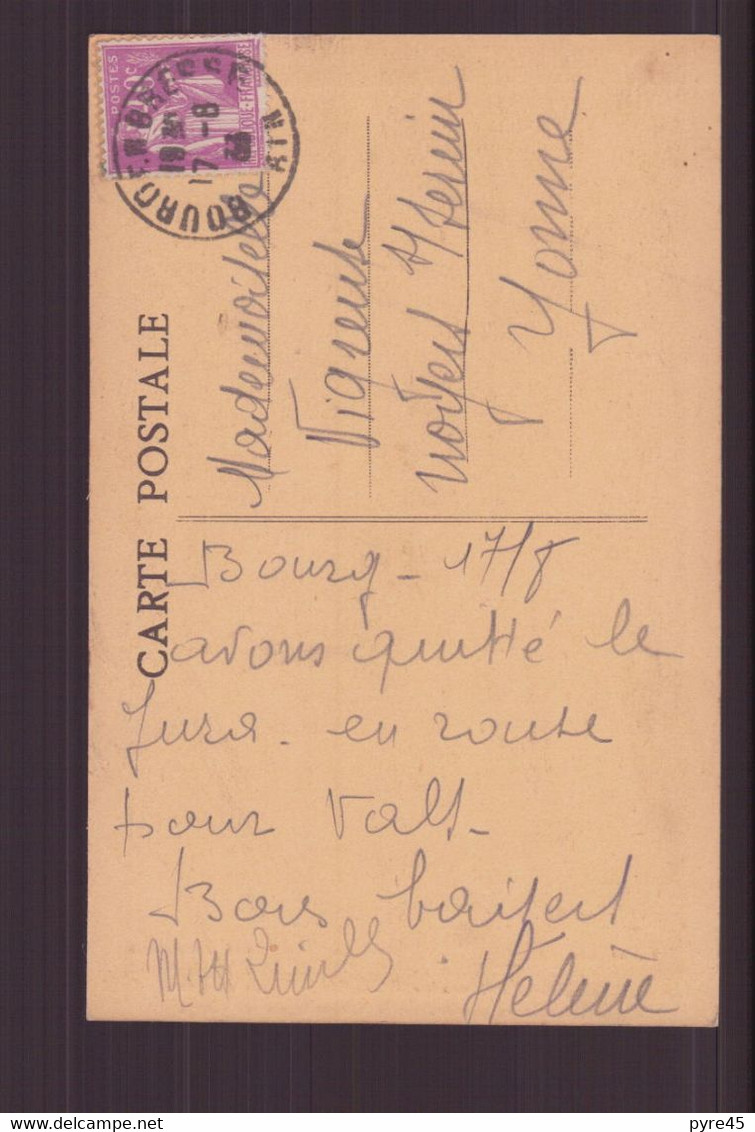 POSTES
BOURG-EN-BRESSE
AIN
17 -8
CARTE POSTALE
Mademoiselle
Vigreux
Noyers s/ Serein
Yonne
Bourg - 17/8
avons quitté le
Jura - en route
pour Vals -
Bons baisers
Hélène
pyre45
delcampe.net